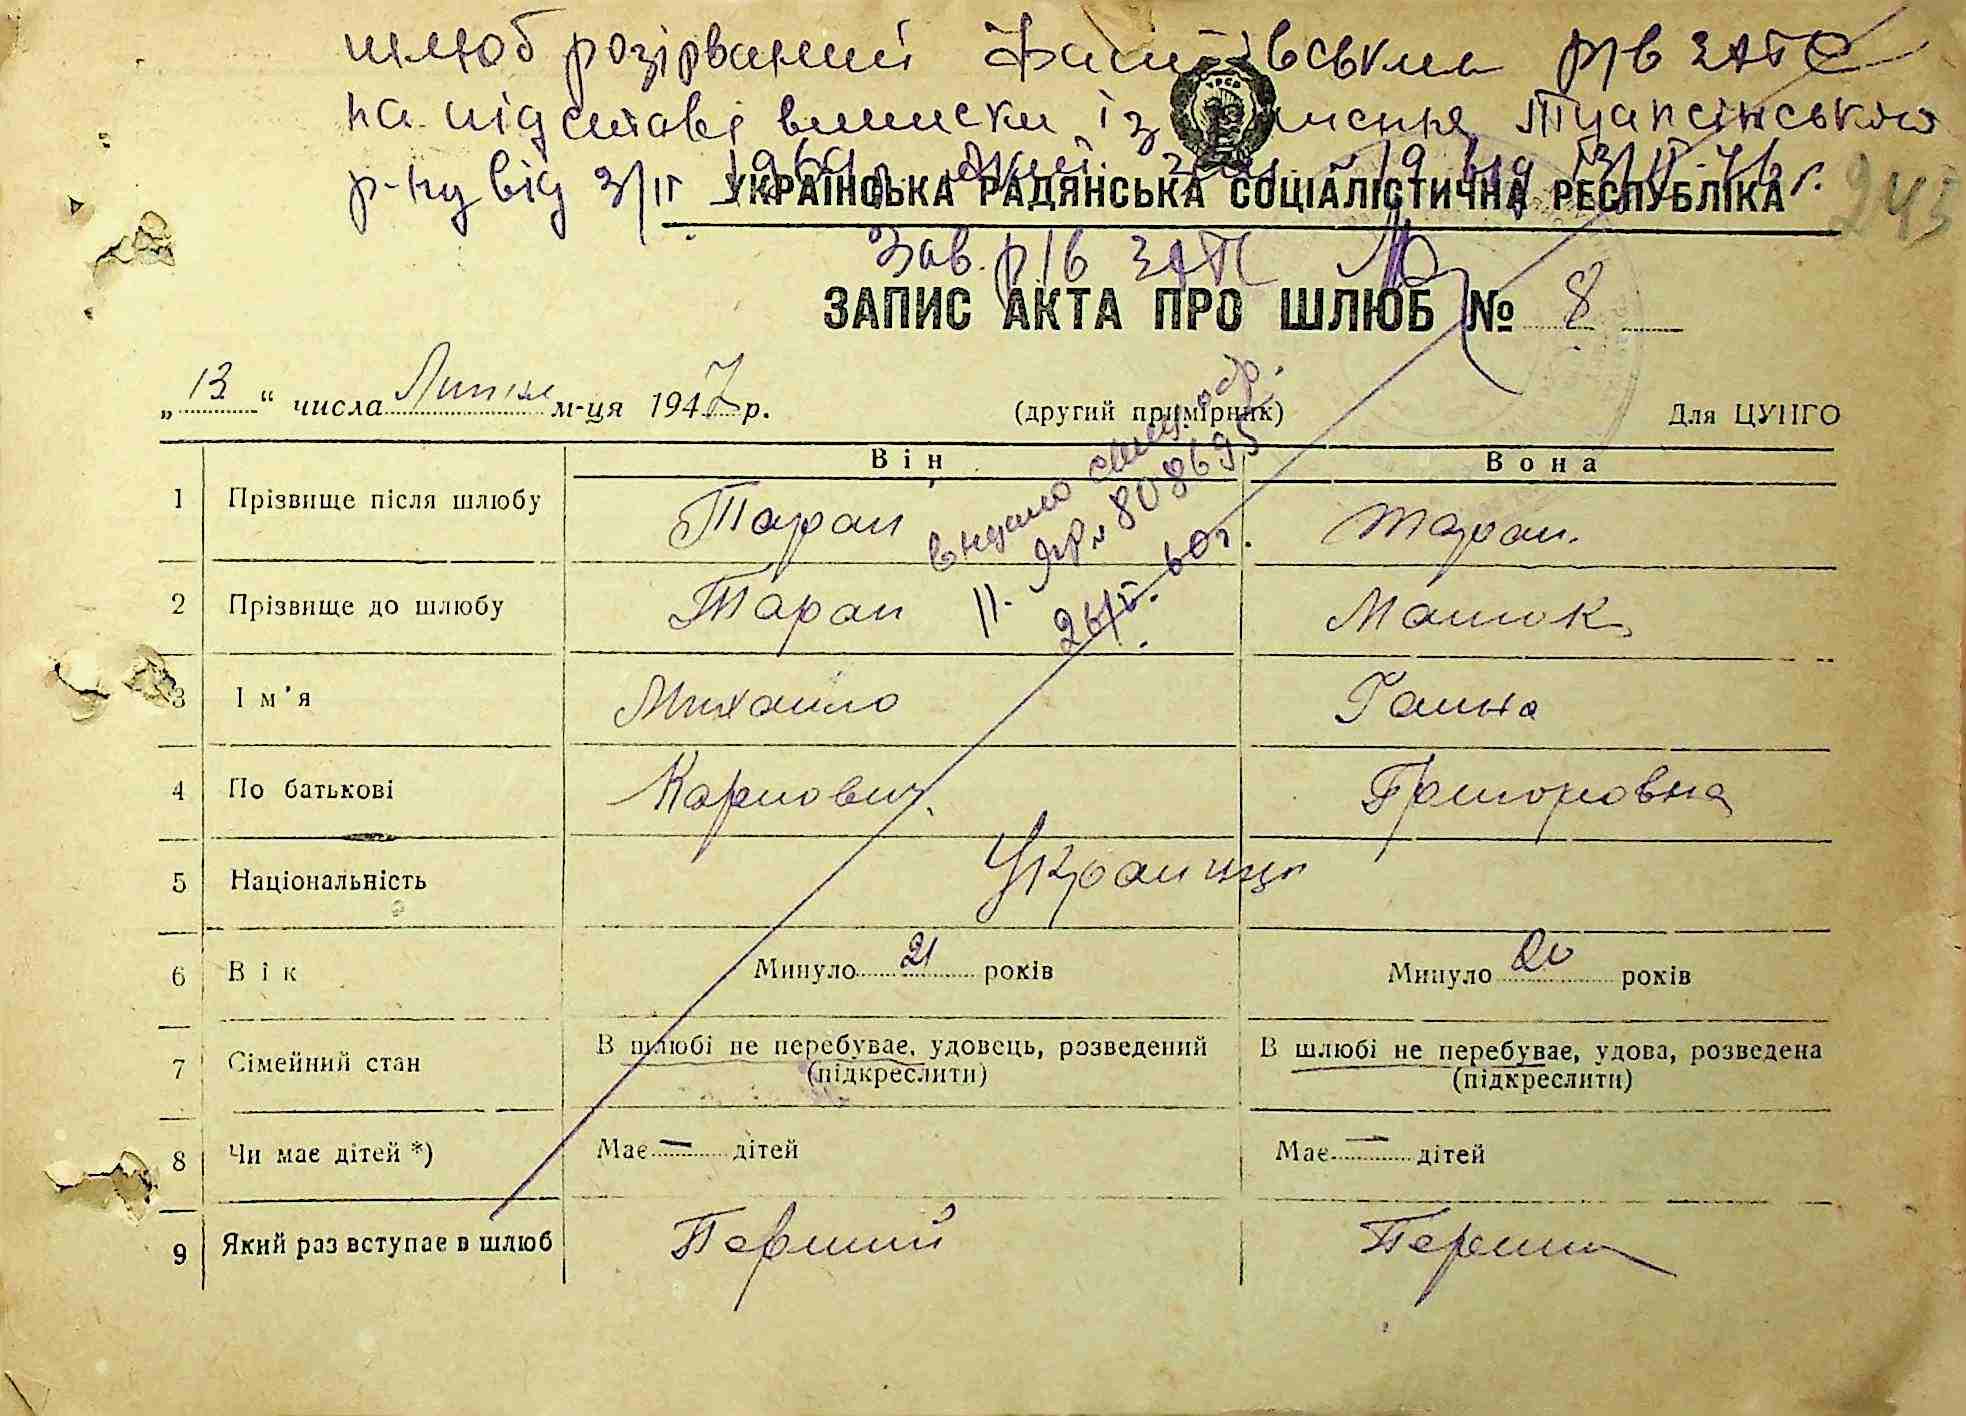 шлюб розірваний Фастівським р/в ЗАГС
на підставі виписки із рішення Туапсінського
р-ну від 3/ІІ
УКРАЇНСЬКА РАДЯНСЬКА СОЦІАЛІСТИЧНА РЕСПУБЛІКА
245
Зав. р/в ЗАГС
ЗАПИС АКТА ПРО ШЛЮБ № 8
„ 13 “ числа Липня м-ця 1947 р. (другий примірник) Для ЦУНГО
Він Вона
видано свід.
ІІ- 808695
26/V-60 г.
1 Прізвище після шлюбу Таран Таран.
2 Прізвище до шлюбу Таран Машок
3 Ім'я Михаило Ганна
4 По батькові Карпович. Григоровна
5 Національність Украинци
6 Вік Минуло 21 років Минуло 20 років
7 Сімейний стан В шлюбі не перебуває, удовець, розведений В шлюбі не перебуває, удова, розведена
(підкреслити) (підкреслити)
8 Чи має дітей *) Має — дітей Має — дітей
9 Який раз вступає в шлюб Перший Перший